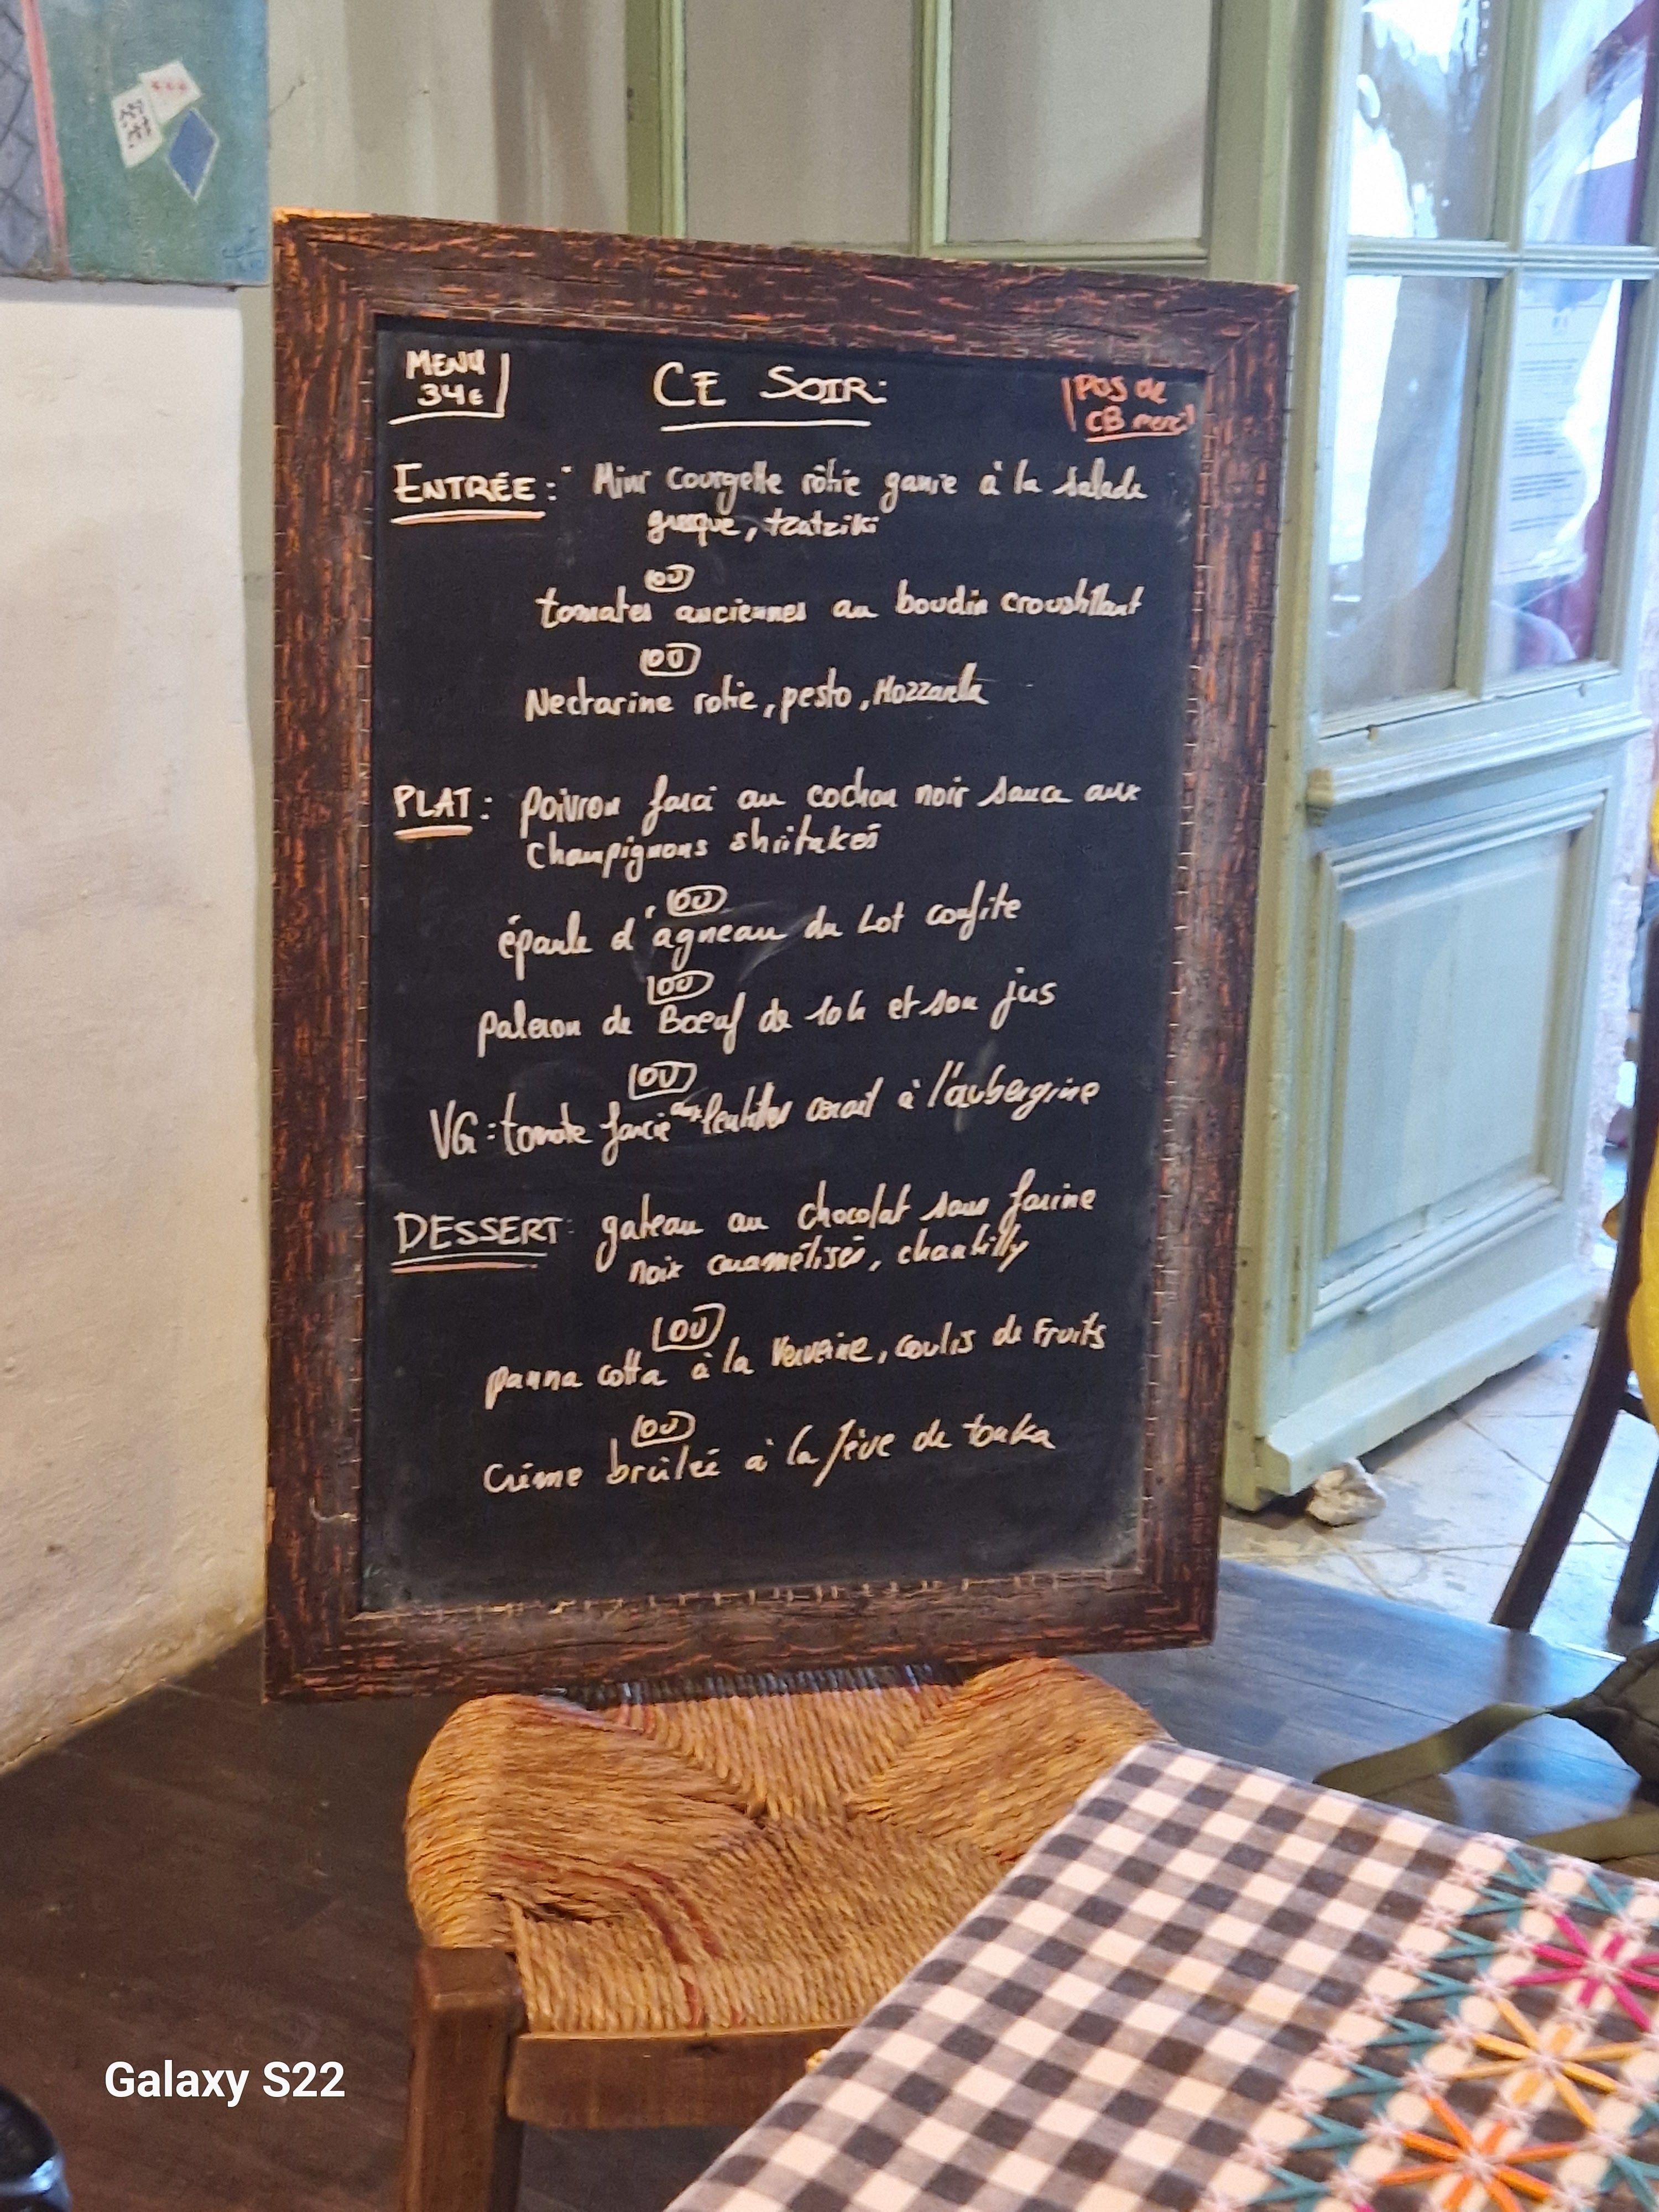 MENU
34€
CE SOIR:
Pas de
CB merci
ENTRÉE: Mini courgette rôtie garnie à la salade
grecque, tzatziki
OU
tomates anciennes au boudin croustillant
OU
Nectarine rotie, pesto, Mozzarella
PLAT: poivron farci au cochon noir sauce aux
champignons shiitakés
OU
épaule d'agneau du Lot confite
OU
paleron de Bœuf de 10h et son jus
OU
VG: tomate farcie aux lentilles corail à l'aubergine
DESSERT: gateau au chocolat sans farine
noix caramélisés, chantilly
OU
panna cotta à la Verveine, coulis de Fruits
OU
Crème brûlée à la fève de tonka
Galaxy S22